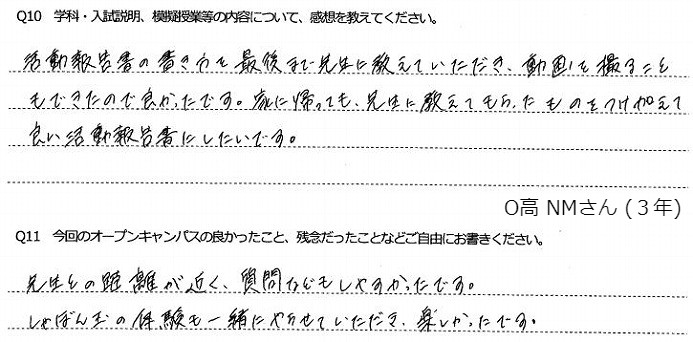 Q10 学科・入試説明、模擬授業等の内容について、感想を教えてください。
活動報告書の書き方を最後まで先生に教えていただき、動画を撮ること
もできたので良かったです。家に帰っても、先生に教えてもらったものをつけ加えて
良い活動報告書にしたいです。
O高 NMさん (３年)
Q11 今回のオープンキャンパスの良かったこと、残念だったことなどご自由にお書きください。
先生との距離が近く、質問などもしやすかったです。
しゃぼん玉の体験も一緒にやらせていただき、楽しかったです。